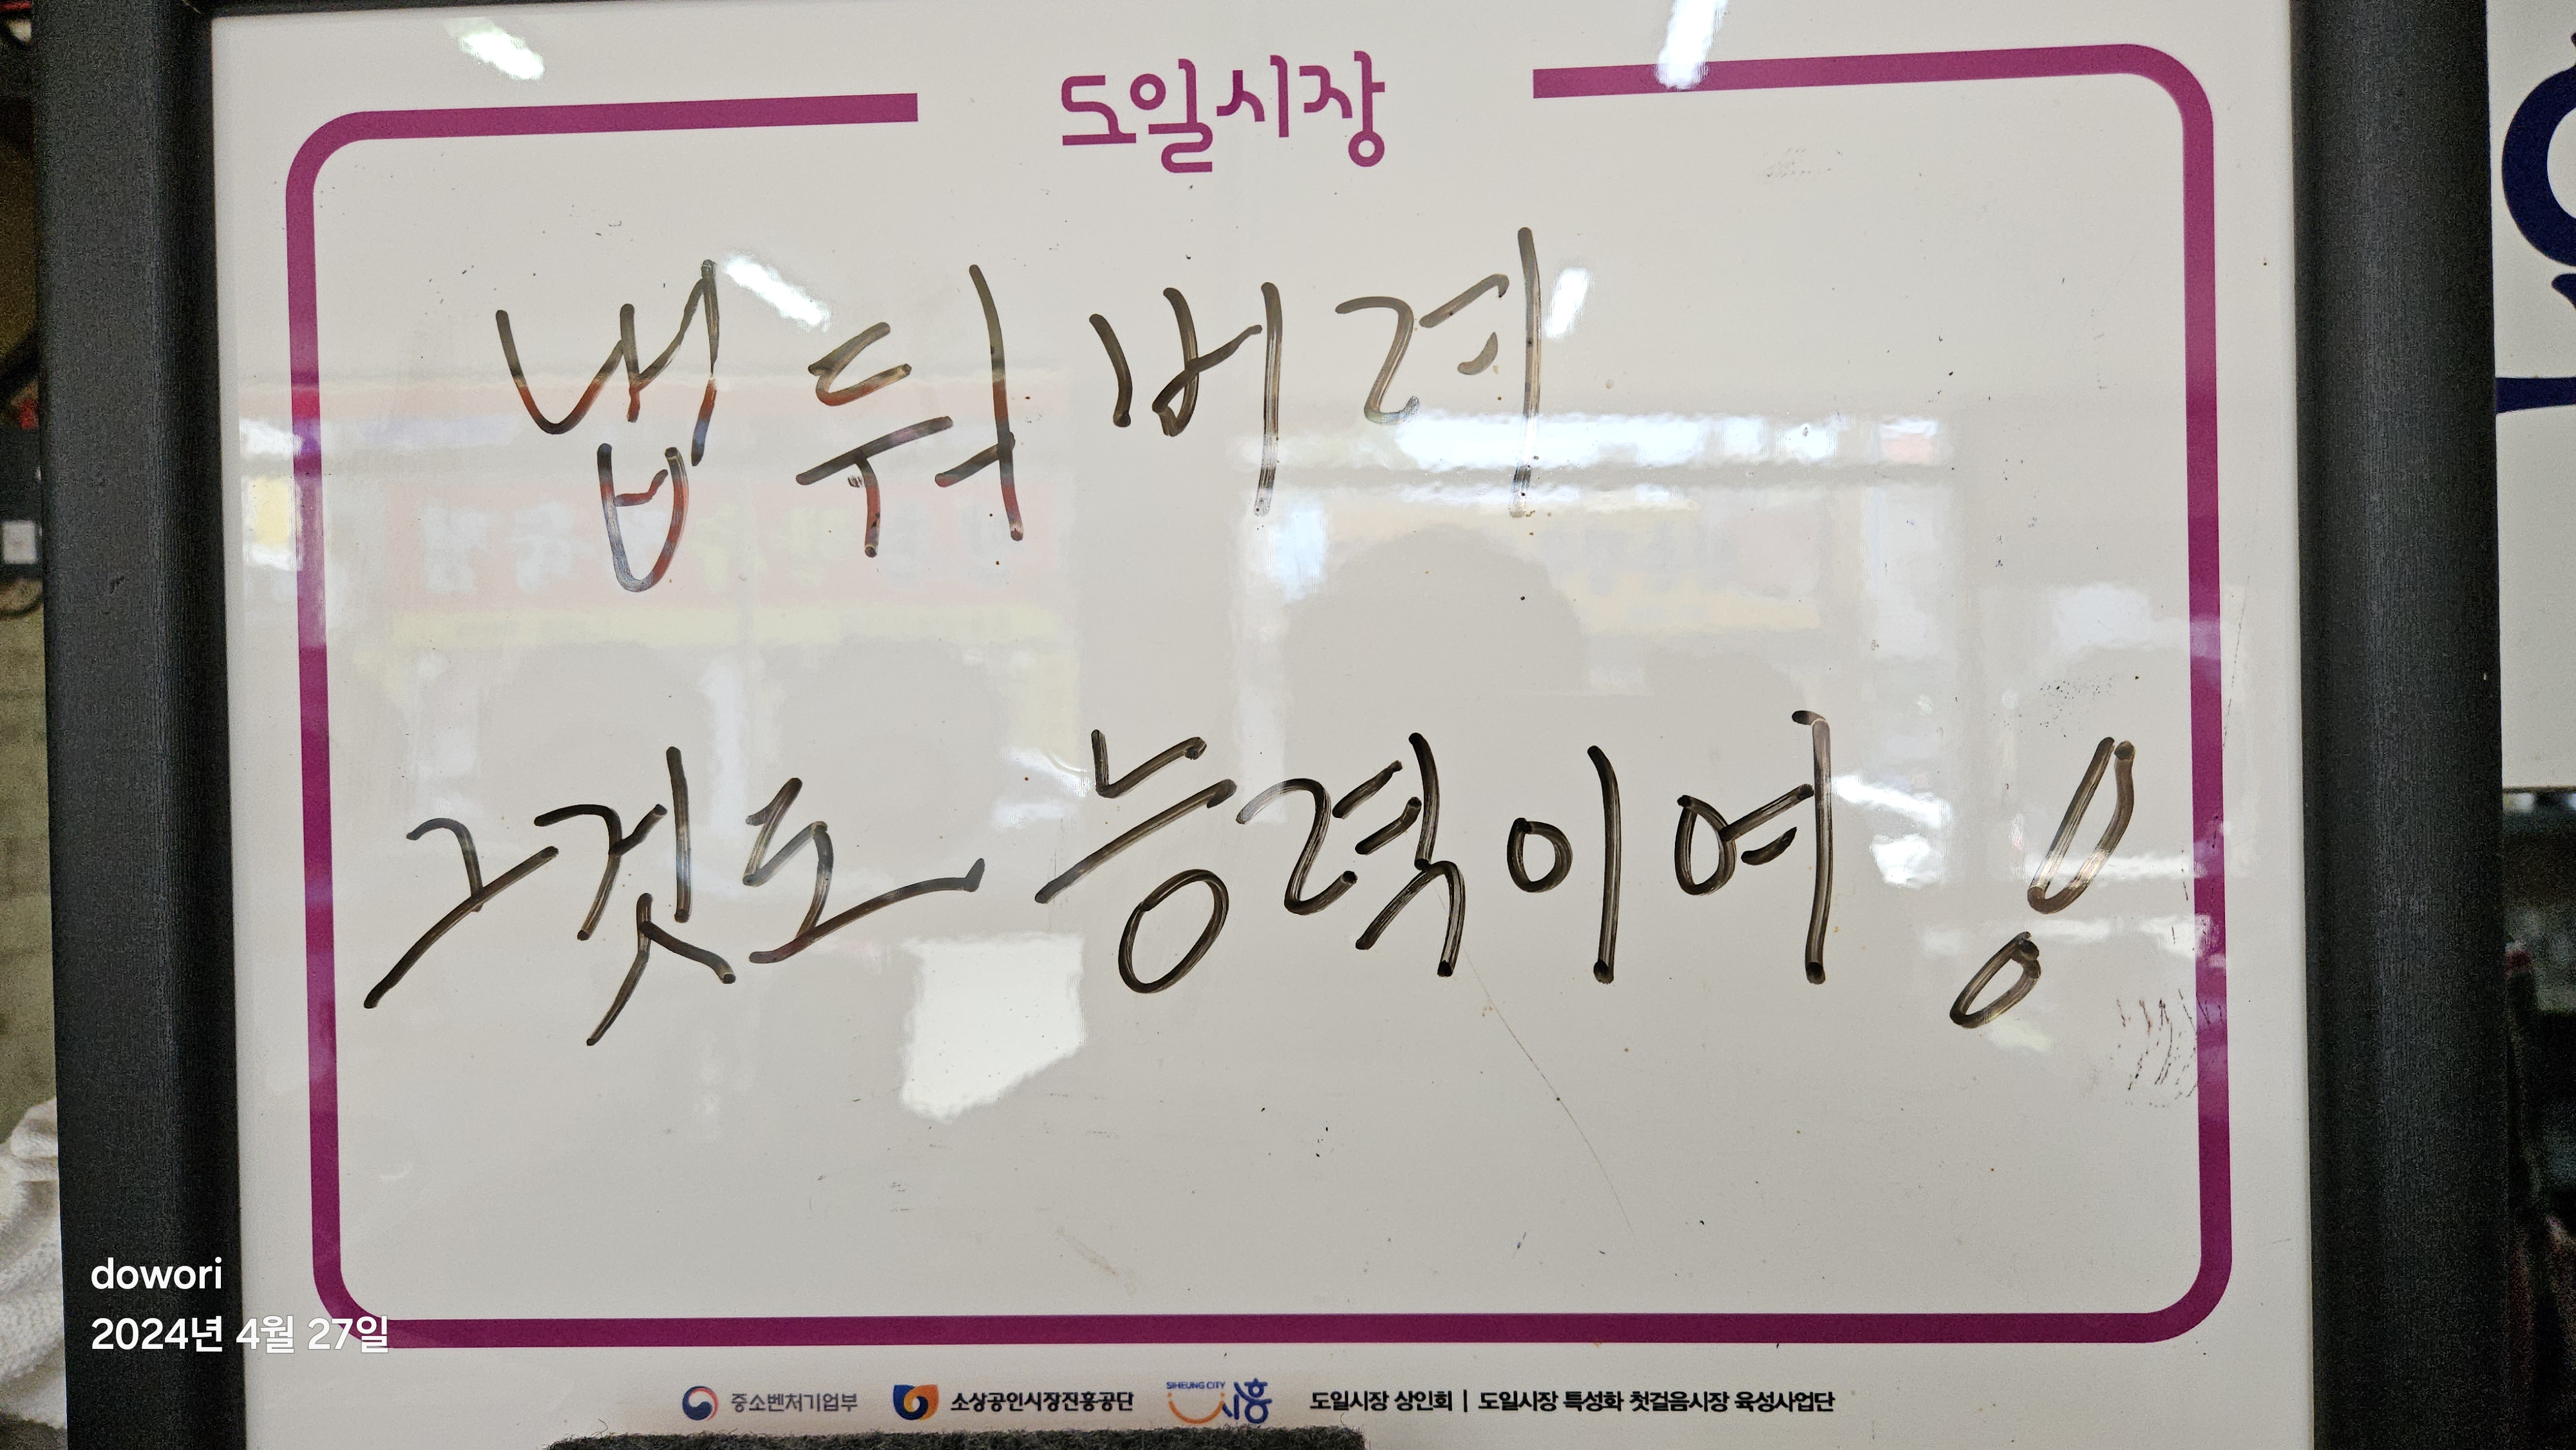 도일시장
냅둬버려
그것도 능력이여!
dowori
2024년 4월 27일
중소벤처기업부 소상공인시장진흥공단 SIHEUNG CITY 시흥 도일시장 상인회 | 도일시장 특성화 첫걸음시장 육성사업단